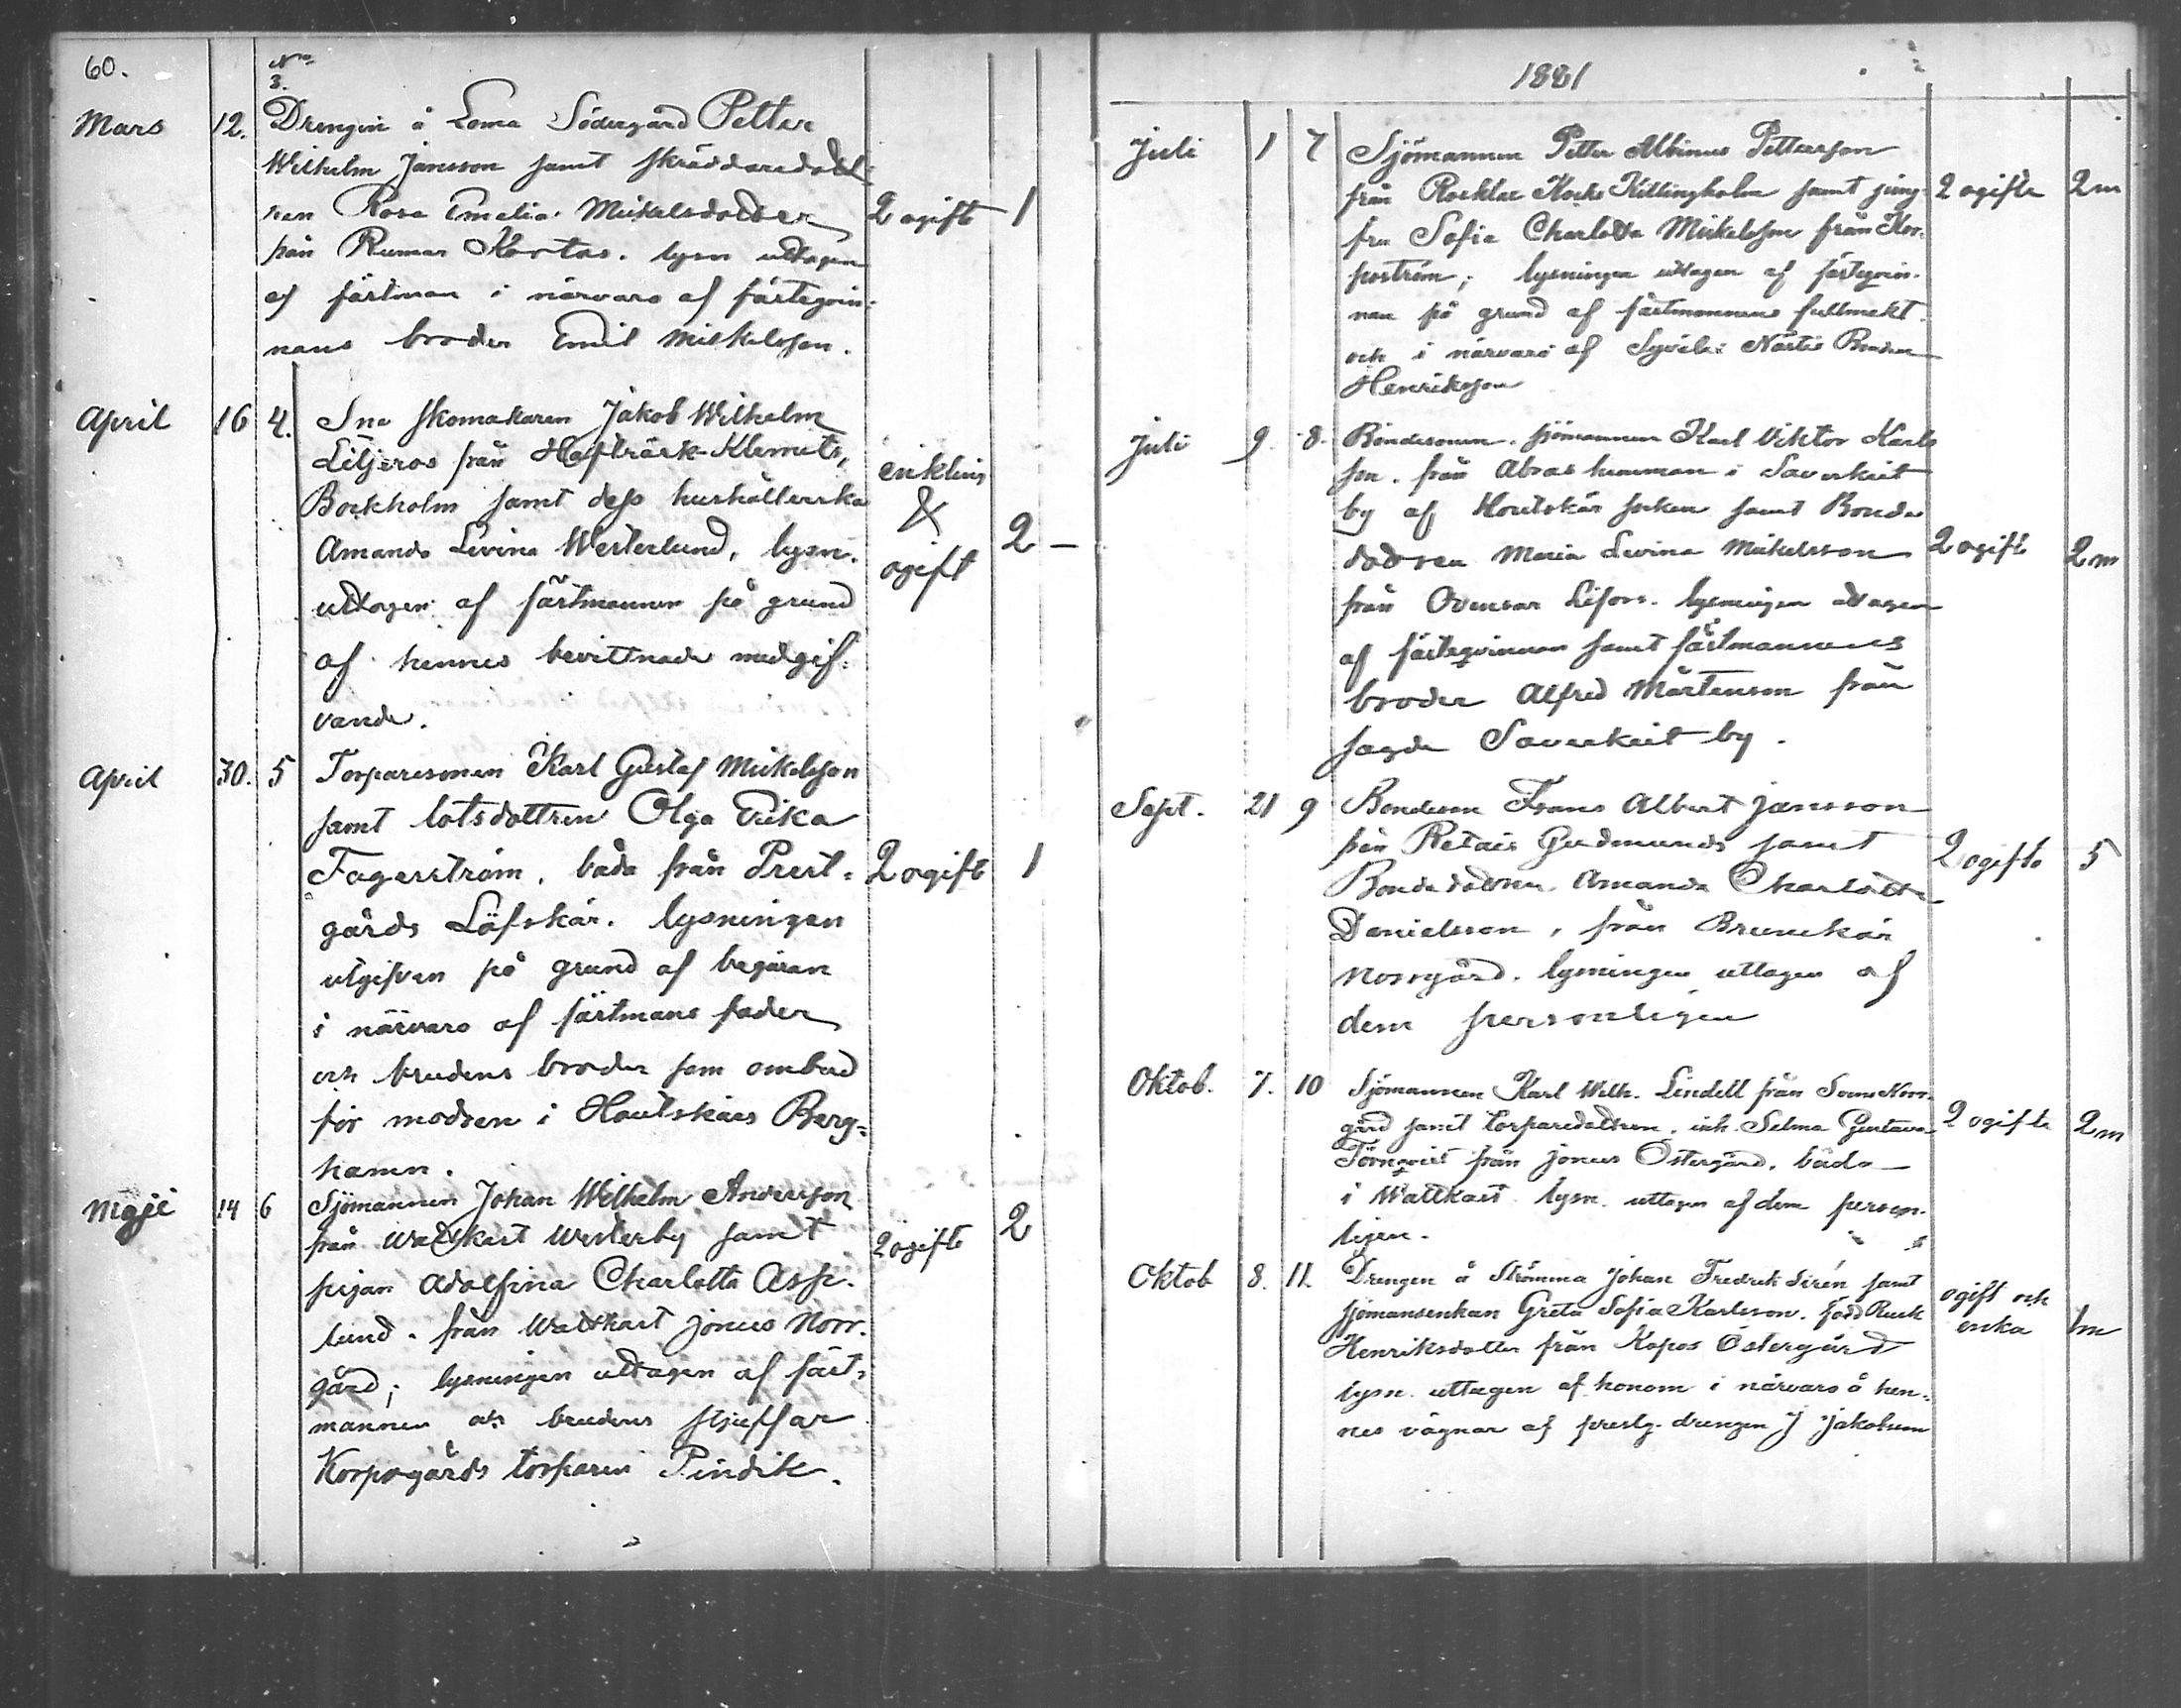 60.
No
3.
Mars 12. Drengen å Loma Södergård Petter
Wilhelm Jansson samt skräddaredott-
ren Rosa Emelia Mickelsdotter 2 ogift 1
från Rumar Kortas. lysn uttagen
af fästman i närvaro af fästeqvin-
nans broder Emil Mickelsson.
April 16 4. Inh skomakaren Jakob Wilhelm
Liljeros från Hafträsk Klemets, enkling
Bockholm samt dess hushållerska &
Amanda Levina Westerlund, lysn. ogift 2 –
uttagen af fästmannen på grund
af hennes bevittnade medgif-
vande.
April 30. 5 Torparesonen Karl Gustaf Mickelsson
samt lotsdottren Olga Erika
Fagerström, båda från Prest- 2 ogift 1
gårds Löfskär. lysningen
utgifven på grund af begäran
i närvaro af fästmans fader
och brudens broder som ombud
för modren i Houtskärs Berg-
hamn.
Maji 14 6 Sjömannen Johan Wilhelm Andersson
från Wattkast Westerby samt 2 ogifte 2
pigan Adolfina Charlotta Asp-
lund från Wattkast Jönus Norr-
gård; lysningen uttagen af fäst-
mannen och brudens stjuffar
Korpogårds torparen Pindik.
1881
Juli 1 7 Sjömannen Petter Albinus Petterson
från Rosklax Kocks Killingholm samt jung- 2 ogifte 2m
fru Sofia Charlotta Mickelsson från Kor-
poström; lysningen uttagen af fästeqvin-
nan på grund af fästmannens fullmakt
och i närvaro af Bonden
Henriksson
Juli 9. 8. Bondesonen, sjömannen Karl Viktor Karls
son från Abras hemman i Saverkeit
by af Houtskär socken samt Bonde
dottren Maria Levina Mickelsson 2 ogift 2m
från Ovensor Lifors. lysningen uttagen
af fästeqvinnan samt fästmannens
broder Alfred Mårtenson från
sagde Saverkeit by.
Sept. 21 9 Bonden Frans Albert Jansson
från Retais Gudmunds samt 2 ogifte 5
Bondedottren Amanda Charlotta
Danielsson, från Brunskär
Norrgård. lysningen uttagen af
dem personligen
Oktob. 7. 10 Sjömannen Karl Wilh. Lindell från Norr-
gård samt torparedottren, inh. Selma Gustava 2 ogifte 2m
Törnqvist från Jönus Östergård, båda
i Wattkast lysn. uttagen af dem person-
ligen.
Oktob 8. 11. Drengen å Strömma Johan Fredrik Sirén samt
sjömansenkan Greta Sofia Karlsson, född ogift och
Henriksdotter från Kopos Östergård enka 1m
lysn. uttagen af honom i närvaro å hen-
nes vägnar af prestg. drengen J Jakobsson